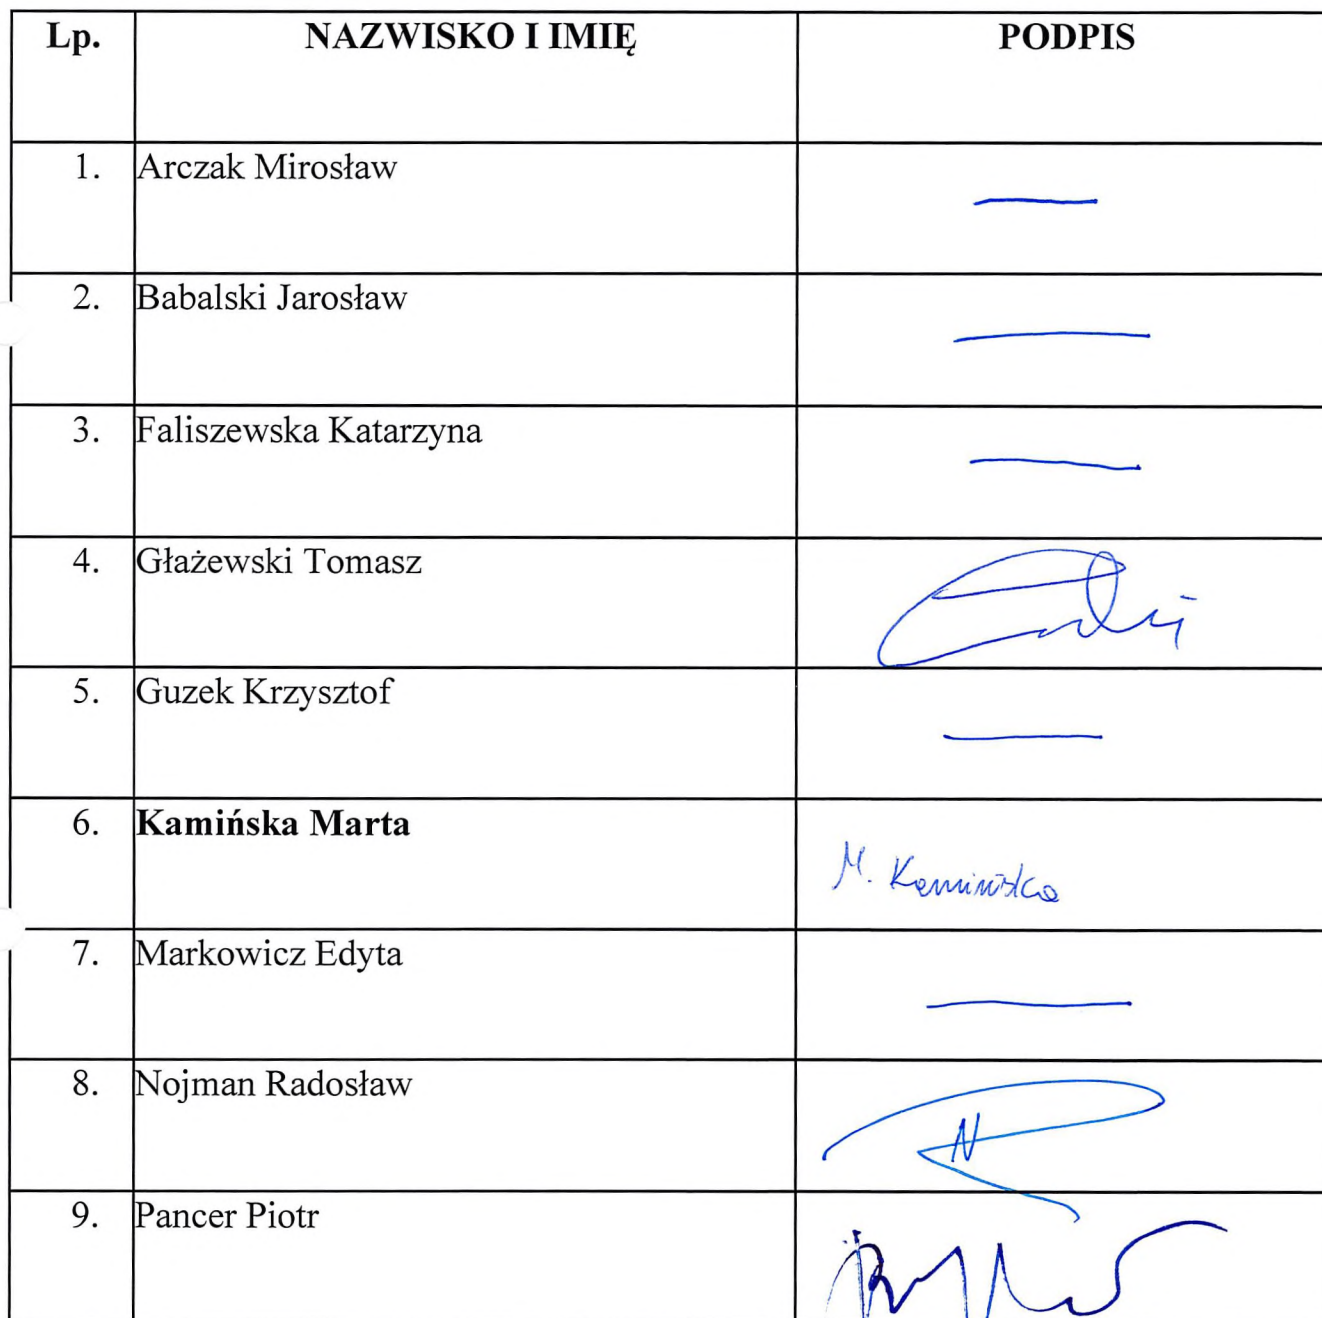 Lp. NAZWISKO I IMIĘ PODPIS
1. Arczak Mirosław
2. Babalski Jarosław
3. Faliszewska Katarzyna
4. Głażewski Tomasz
5. Guzek Krzysztof
6. Kamińska Marta M. Kamińska
7. Markowicz Edyta
8. Nojman Radosław
9. Pancer Piotr